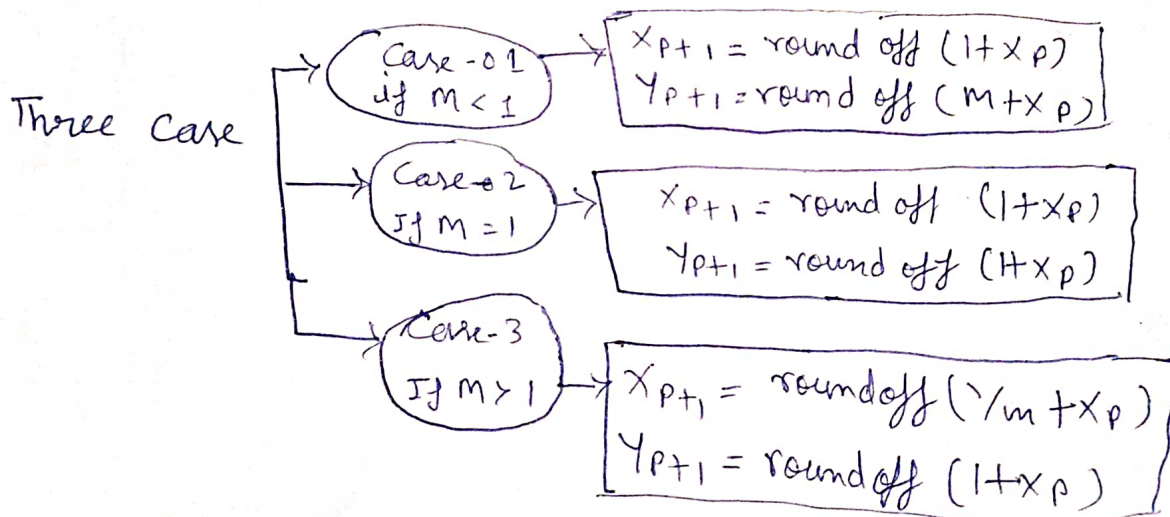 Three Case
Case-01
if M < 1
Xp+1 = round off (1+Xp)
Yp+1 = round off (m+Xp)
Case-02
If M = 1
Xp+1 = round off (1+Xp)
Yp+1 = round off (1+Xp)
Case-3
If M > 1
Xp+1 = roundoff (1/m + Xp)
Yp+1 = roundoff (1+Xp)